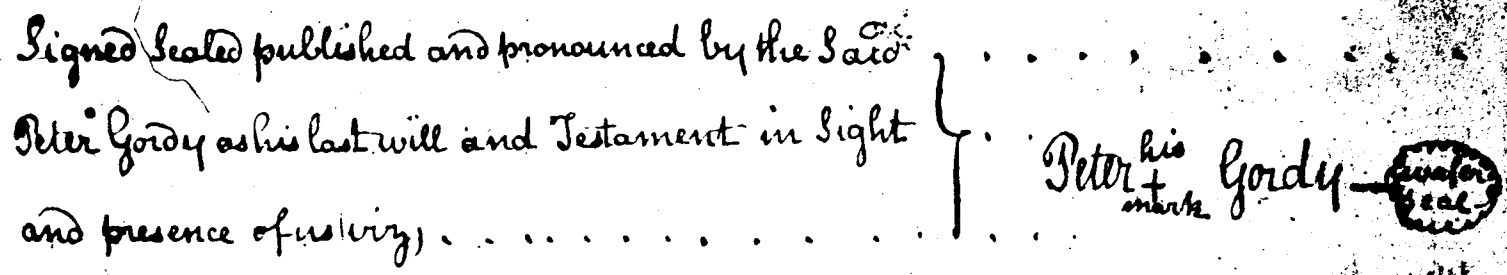 Signed Sealed published and pronounced by the Said
Peter Gordy as his last will and Testament in Sight
and presence of us viz,
his
Peter + Gordy
mark
wafer
seal